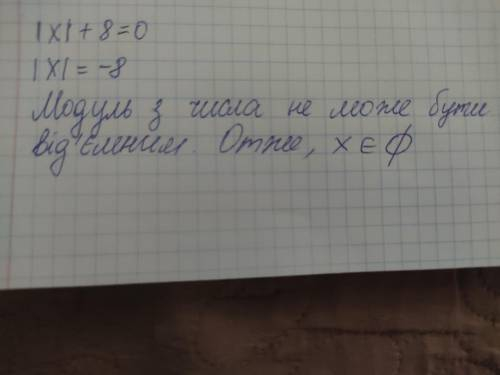 |x| + 8 = 0
|x| = -8
Модуль з числа не може бути
від'ємним. Отже, x ∈ ∅